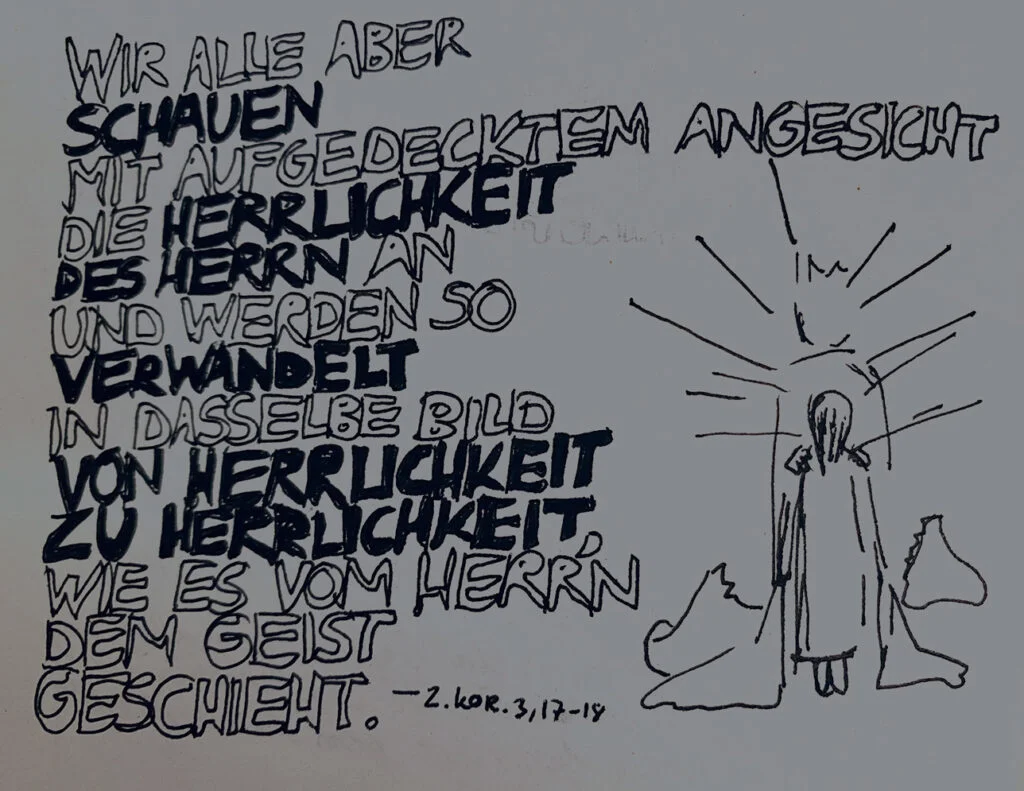 WIR ALLE ABER
SCHAUEN
MIT AUFGEDECKTEM ANGESICHT
DIE HERRLICHKEIT
DES HERRN AN
UND WERDEN SO
VERWANDELT
IN DASSELBE BILD
VON HERRLICHKEIT
ZU HERRLICHKEIT,
WIE ES VOM HERR'N
DEM GEIST
GESCHIEHT.
- 2. KOR. 3, 17-18